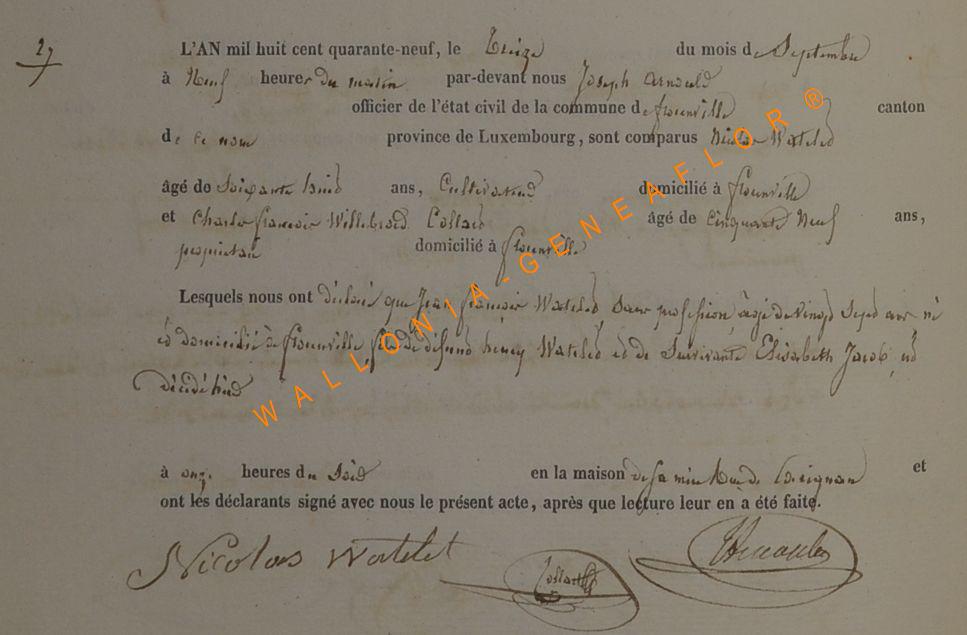 27
L'AN mil huit cent quarante-neuf, le treize du mois de Septembre
à Neuf heures du matin par-devant nous Joseph Arnould
officier de l'état civil de la commune de florenville canton
de ce nom province de Luxembourg, sont comparus Nicolas Watelet
âgé de Soixante huit ans, Cultivateur domicilié à florenville
et Charles françois Willebrord Collard âgé de Cinquante Neuf ans,
propriétaire domicilié à florenville
Lesquels nous ont déclaré que Jean françois Watelet Sans profession, âgé de Vingt Sept ans né
et domicilié à florenville, fils de défunt henry Watelet et de Survivante Elisabeth Jacob, est
décédé hier
à onze heures du Soir en la maison de sa mère Rue de Carignan et
ont les déclarants signé avec nous le présent acte, après que lecture leur en a été faite.
Nicolas Watelet
Collard
Arnould
WALLONIA-GENEAFLOR ®